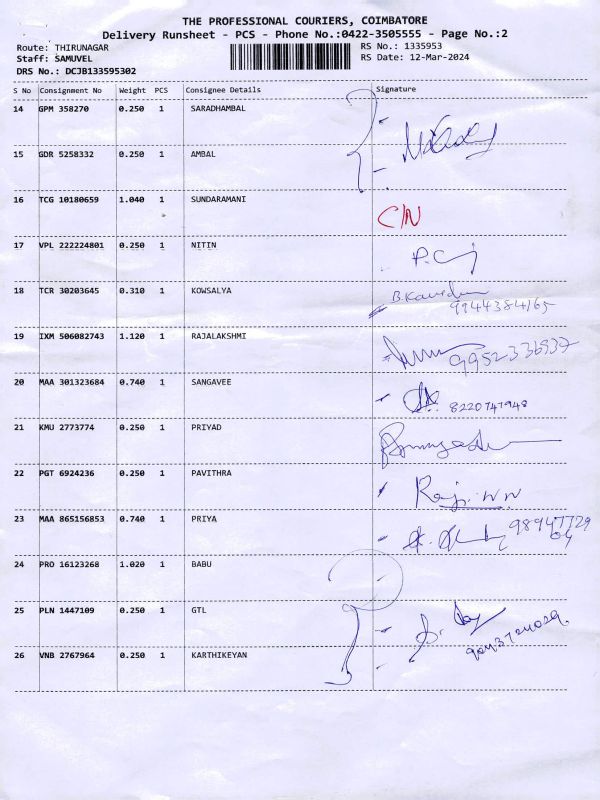 THE PROFESSIONAL COURIERS, COIMBATORE
Delivery Runsheet - PCS - Phone No.:0422-3505555 - Page No.:2
Route: THIRUNAGAR RS No.: 1335953
Staff: SAMUVEL RS Date: 12-Mar-2024
DRS No.: DCJB133595302
S No Consignment No Weight PCS Consignee Details Signature
14 GPM 358270 0.250 1 SARADHAMBAL
15 GDR 5258332 0.250 1 AMBAL
16 TCG 10180659 1.040 1 SUNDARAMANI C/N
17 VPL 222224801 0.250 1 NITIN
18 TCR 30203645 0.310 1 KOWSALYA
9944384165
19 IXM 506082743 1.120 1 RAJALAKSHMI
20 MAA 301323684 0.740 1 SANGAVEE 8220747948
21 KMU 2773774 0.250 1 PRIYAD
22 PGT 6924236 0.250 1 PAVITHRA
23 MAA 865156853 0.740 1 PRIYA
24 PRO 16123268 1.020 1 BABU
25 PLN 1447109 0.250 1 GTL
26 VNB 2767964 0.250 1 KARTHIKEYAN